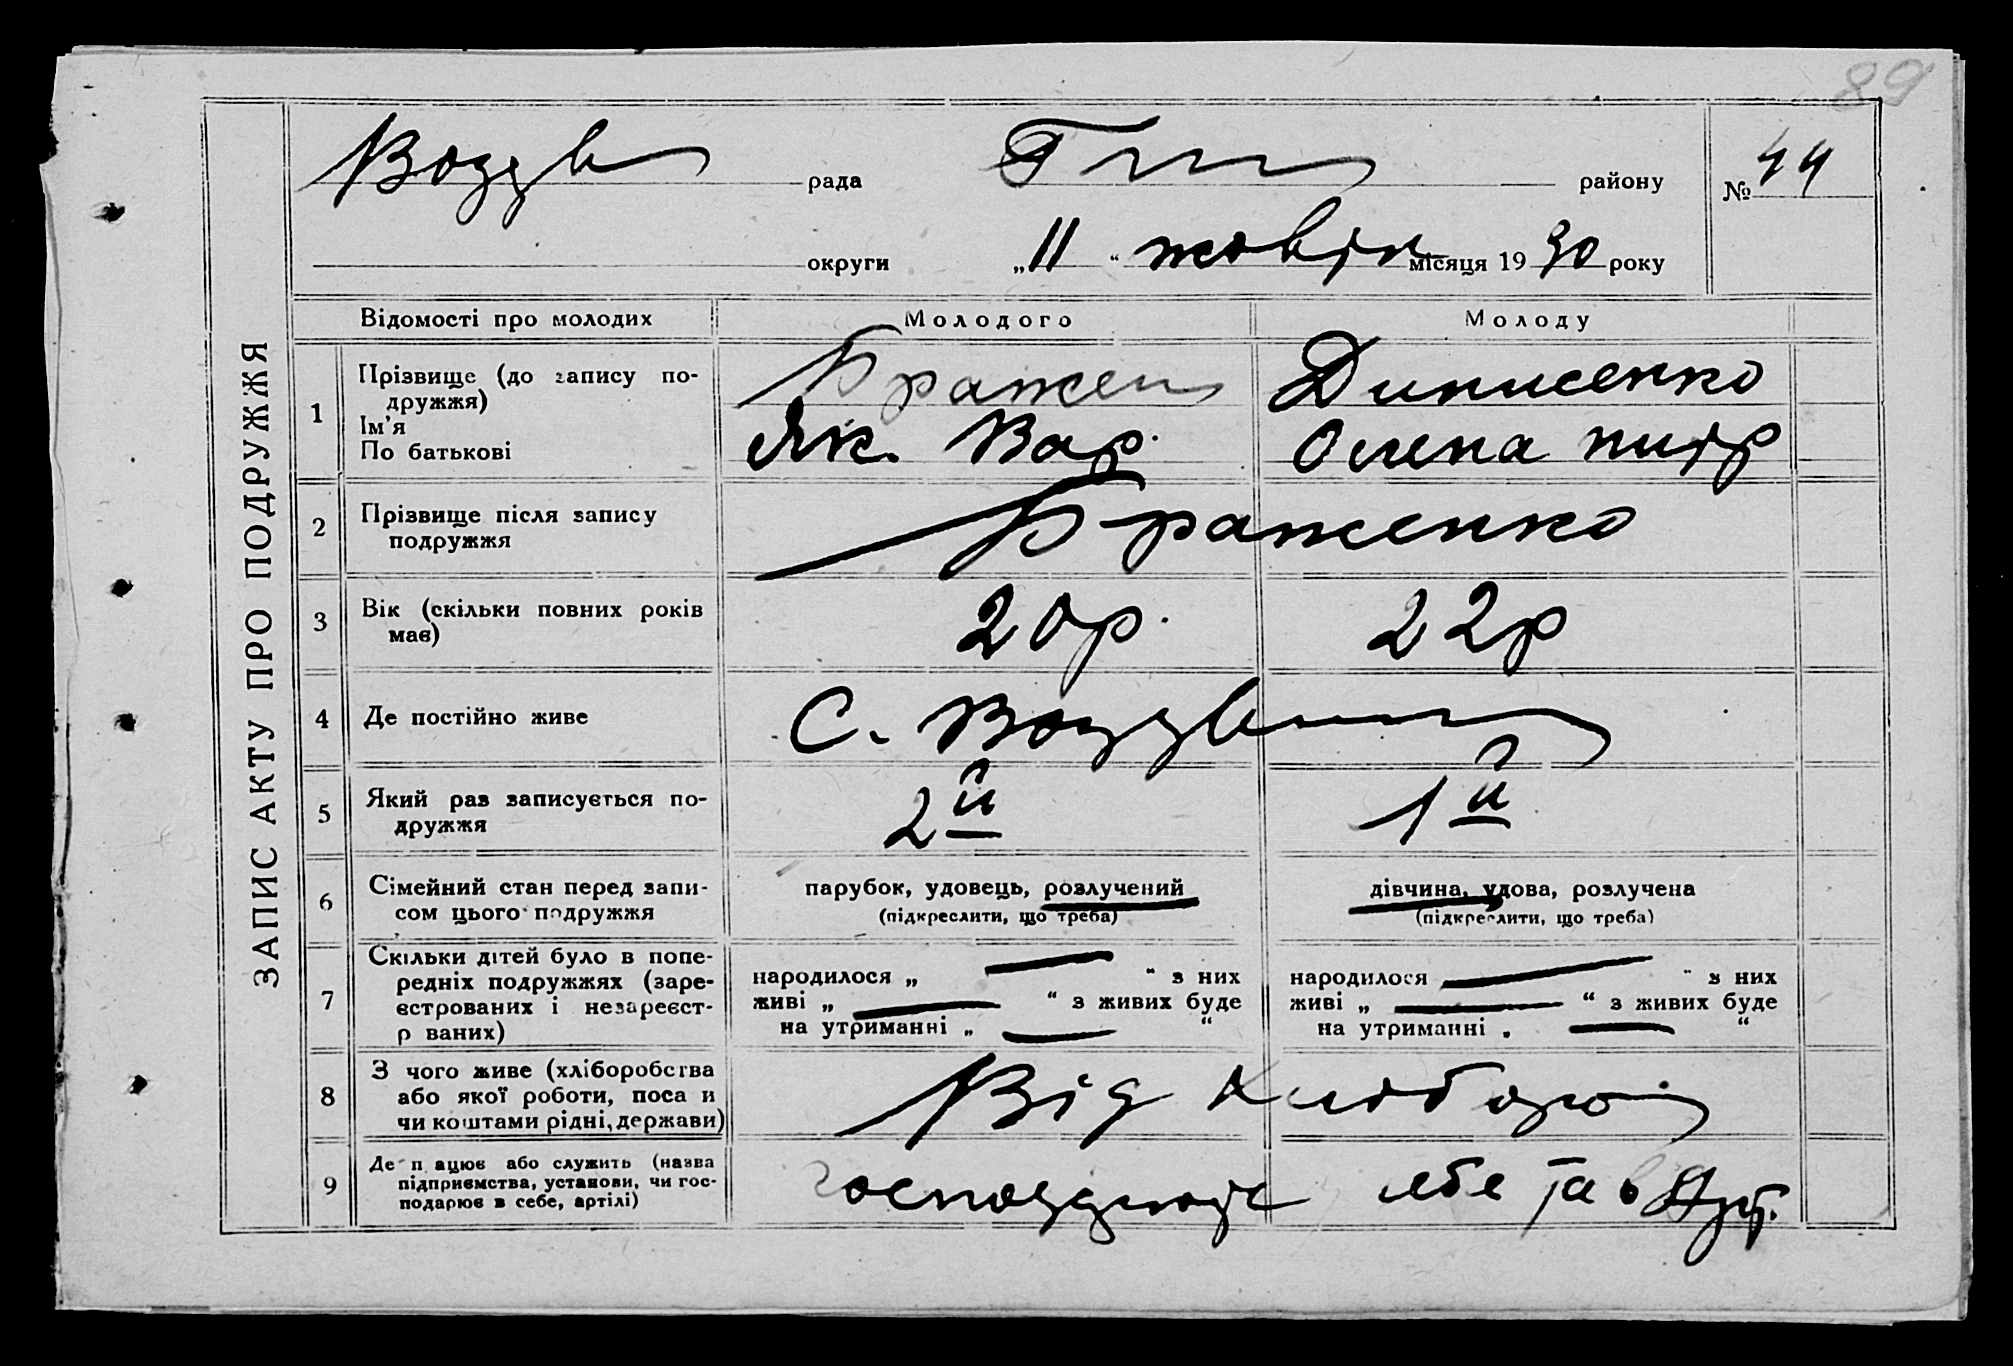 89
Воздв рада Г района № 44
округи „11“ жовтн місяця 1930 року
ЗАПИС АКТУ ПРО ПОДРУЖЖЯ
Відомості про молодих Молодого Молоду
1 Прізвище (до запису по-
дружжя) Бражен Динисенко
Ім'я
По батькові Як. Вар. Олена питр
2 Прізвище після запису
подружжя Браженко
3 Вік (скільки повних років
має) 20р. 22р
4 Де постійно живе С. Воздв
5 Який раз записується по-
дружжя 2й 1й
6 Сімейний стан перед запи-
сом цього подружжя
парубок, удовець, розлучений
(підкреслити, що треба)
дівчина, удова, розлучена
(підкреслити, що треба)
7 Скільки дітей було в попе-
редніх подружжях (заре-
єстрованих і незареєст-
р ваних)
народилося „ — “ з них
живі „ — “ з живих буде
на утриманні „ — “
народилося — “ з них
живі „ — “ з живих буде
на утриманні „ — “
8 З чого живе (хліборобства
або якої роботи, поса и
чи коштами рідні, держави) Від
9 Де п ацює або служить (назва
підприємства, установи, чи гос-
подарює в себе, артілі) себе та в